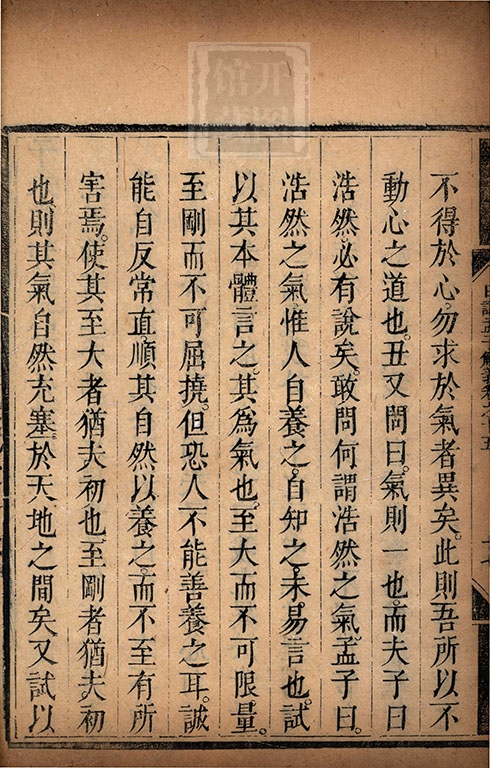 不得於心勿求於氣者異矣。此則吾所以不
動心之道也。丑又問曰。氣則一也。而夫子曰
浩然。必有說矣。敢問何謂浩然之氣。孟子曰。
浩然之氣。惟人自養之。自知之。未易言也。試
以其本體言之。其為氣也。至大而不可限量。
至剛而不可屈撓。但恐人不能善養之耳。誠
能自反常直。順其自然以養之。而不至有所
害焉。使其至大者猶夫初也。至剛者猶夫初
也。則其氣自然充塞於天地之間矣。又試以